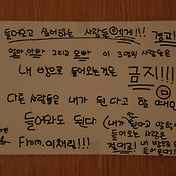 들어오고 싶어하는 사람들에게!!! 경고!
엄마, 아빠 그리고 오빠 이 3명의 사람들은
내 방으로 들어오는것은 금지!!!
다른 사람들은 내가 된 다고 할 때만
들어와도 된다 (내가 된다고 말해도
들어오는 사람은
From. 이채림!!! 절대로! 내 방으로